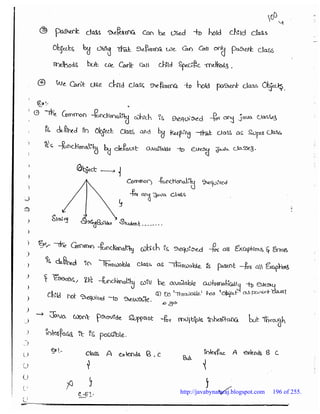 100
③ parent class reference can be used to hold child class
Objects by using that reference we can call only parent class
methods but we Can't call child specific methods.
④ we Can't use child class reference to hold parent class Objects.
Ex:-
① The Common functionality which is required for any java classes
is defined in Object class and by keeping that class as Super class
it's functionality by default available to every java classes.
Object → {
Common functionality required
for any java class
}
String StringBuilder Student........
Ex:- The Common functionality which is required for all Exceptions & Errors
is defined in Throwable class as Throwable is parent for all Exceptions
& Errors, its functionality will be available automatically to every
child not required to rewrite.
→ Java won't provide support for multiple inheritance but Through
interfaces it is possible.
Ex:- class A extends B, C But Interface A extends B C
{ {
} }
C.E!-
http://javabynataraj.blogspot.com 196 of 255.